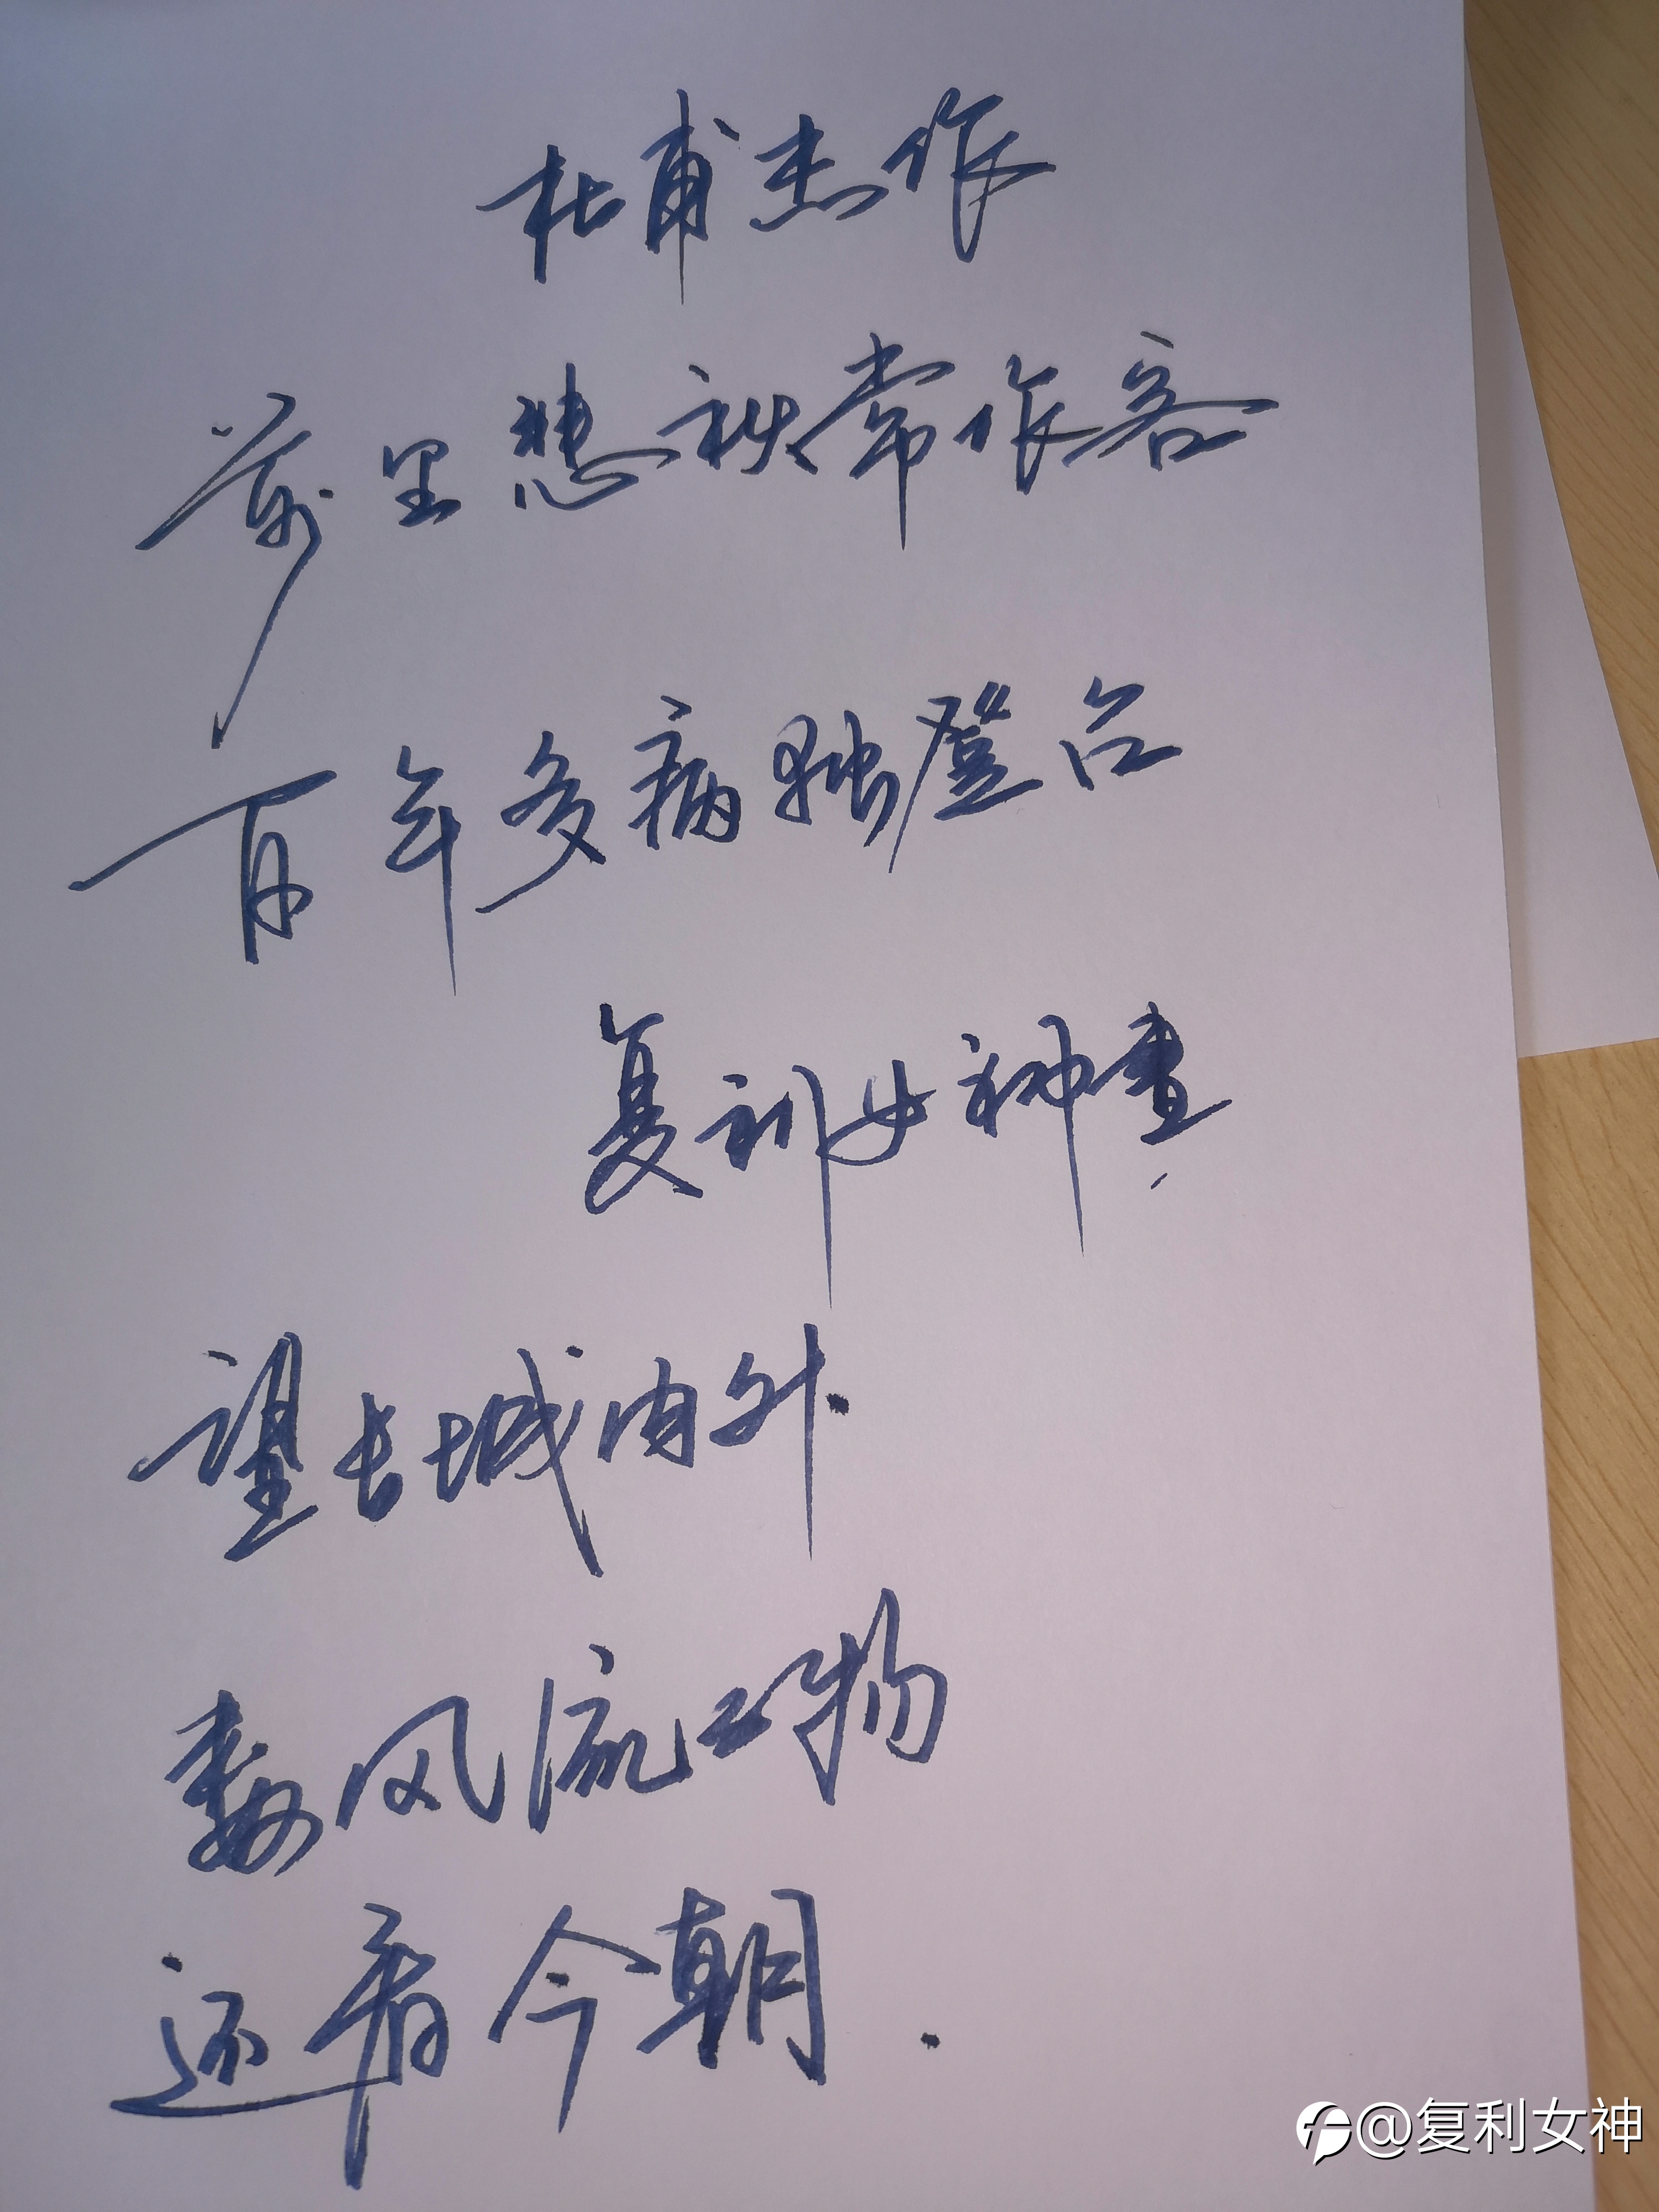 杜甫杰作
万里悲秋常作客
百年多病独登台
复利女神书
望长城内外
数风流人物
还看今朝.
@复利女神